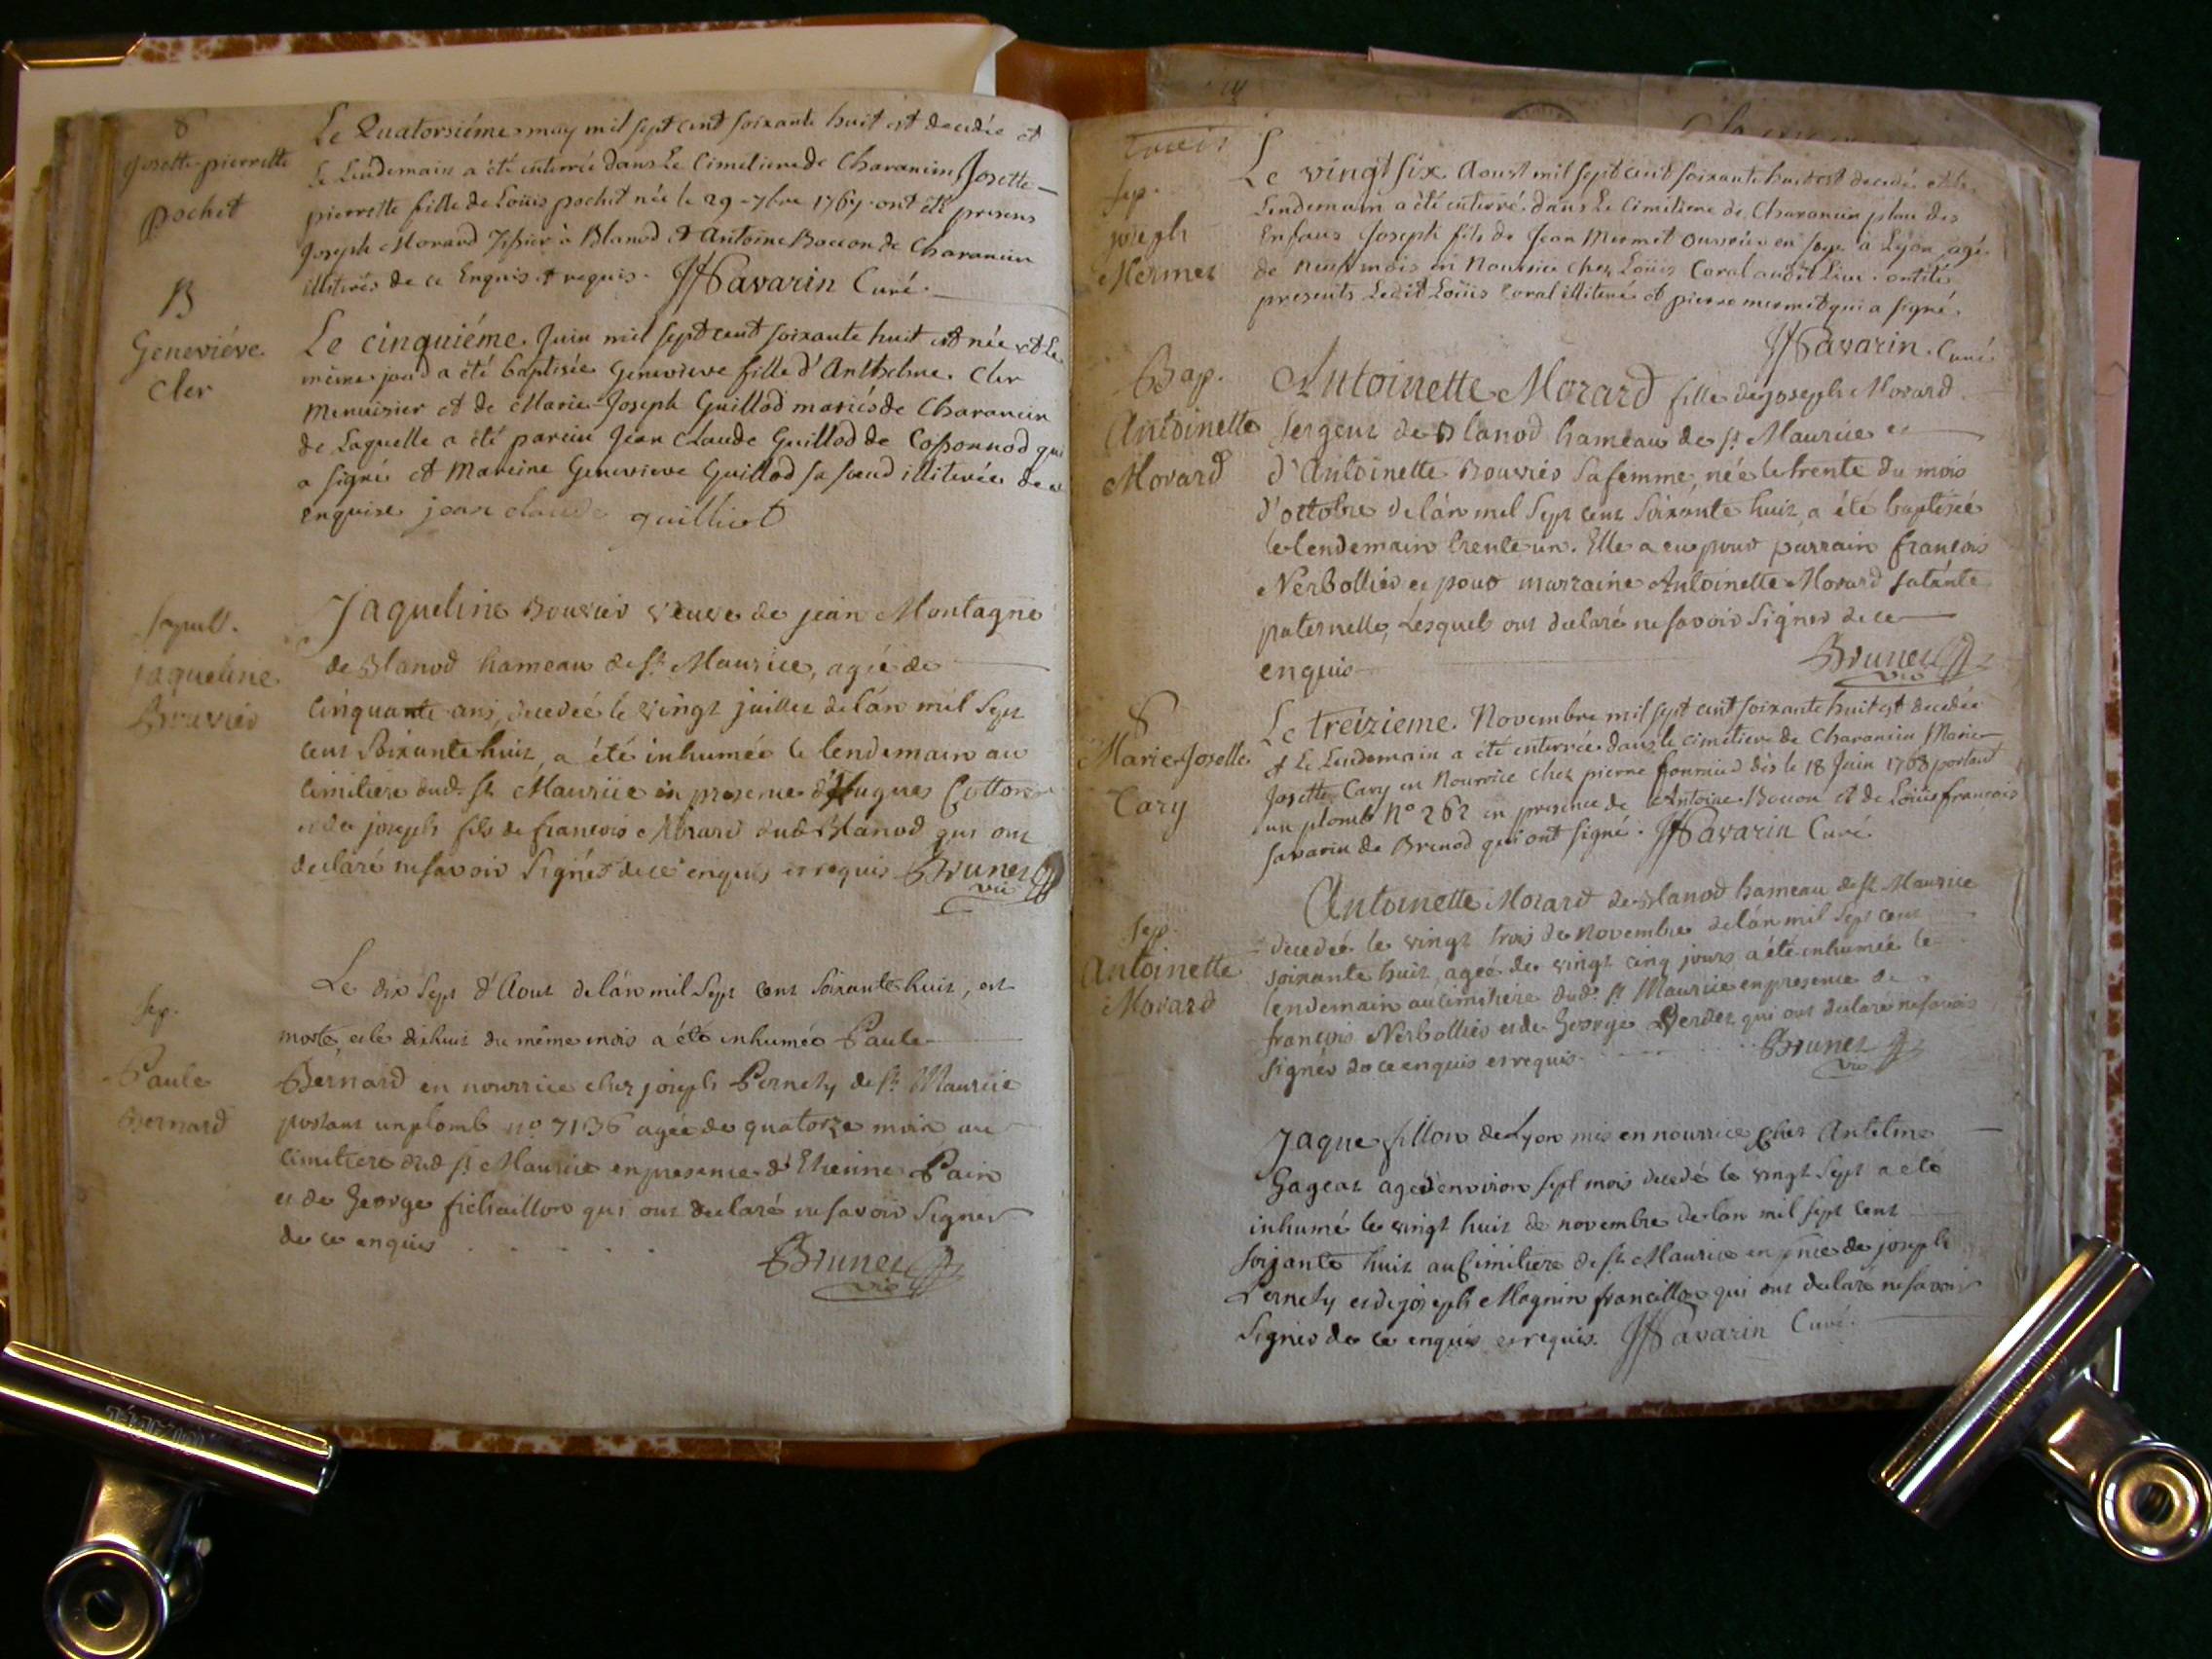 S
Josette-pierrette
pochet
Le Quatorsiéme may mil sept cent soixante huit est decedée et
le Lendemain a été enterrée dans Le Cimetiere de Charancin Josette
pierrette fille de Loüis pochet née le 29 - 7bre 1767 ont été presens
Joseph Morard à Blanod et Antoine Bocon de Charancin
illiterés de ce Enquis et requis. Savarin Curé.
B
Geneviéve
Cler
Le cinquiéme Juin mil sept cent soixante huit est née et Le
même jour a été baptisée Genevieve fille d'Anthelme Cler
Menuisier et de Marie-Joseph Guillod mariés de Charancin
de Laquelle a été parein Jean Claude Guillod de Cossonnod qui
a signé et Mareine Genevieve Guillod sa soeur illiterée de ce
enquise jean claude guilliot
sepult.
jaqueline
Bouvier
Jaqueline Bouvier veuve de jean Montagne
de Blanod hameau de st Maurice, agée de
Cinquante ans, decedeé le vingt juillet de lán mil Sept
cent Soixante huit, a été inhumée le lendemain au
Cimitiere dud. st Maurice en presence d'Hugues Cotton
et de joseph fils de francois Morard dud Blanod qui ont
declaré ne savoir Signer de ce enquis et requis Brunet
vic
sep.
Paule
Bernard
Le dix Sept d'Aout de lán mil Sept Cent Soixante huit, est
morte, et le dixhuit du même mois a été inhumée Paule
Bernard en nourrice chez joseph Pernety de st Maurice
portant un plomb no 7136 agée de quatorze mois au
Cimetiere dud st Maurice en presence d'Etienne Pain
et de George fichaillon qui ont declaré ne savoir Signer
de ce enquis
Brunet
vic
sep.
joseph
Mermet
Le vingt six Aoust mil sept cent soixante huit est decedé et le
Lendemain a été enterré dans Le Cimetiere de Charancin plan des
Enfans Joseph fils de Jean Mermet ouvrier en soye à Lyon agé
de neuf mois en Nourrice chez Loüis Coral audit Lieu. ont été
presents Ledit Loüis Coral illiteré et pierre mermet qui a signé.
Savarin. Curé
Bap.
Antoinette
Morard
Antoinette Morard fille de joseph Morard
sergent de Blanod hameau de st Maurice et
d'Antoinette Bouvier sa femme, née le trente du mois
d'octobre de lán mil Sept cent Soixante huit, a été baptisée
le lendemain trente un. Elle a eu pour parrain françois
Nerbollier et pour marraine Antoinette Morard sa tánte
paternelle, Lesquels ont declaré ne savoir Signer de ce
enquis
Brunet
vic
S
Marie Josette
Cary
Le treizieme Novembre mil sept cent soixante huit est decedée
et Le Lendemain a été enterrée dans le cimetiere de Charancin Marie
Josette Cary en Nourrice chez pierre fournier dès le 18 Juin 1768 portant
un plomb No 262 en presence de Antoine Bocon et de Loüis françois
savarin de Brenod qui ont signé. Savarin Curé
sep.
Antoinette
Morard
Antoinette Morard de Blanod hameau de st Maurice
decedeé le vingt trois de Novembre de lán mil Sept cent
soixante huit, ageé de vingt cinq jours a été inhumée le
lendemain au cimitiére dud. st Maurice en presence de
françois Nerbollier et de George Berdet qui ont declaré ne savoir
signer de ce enquis et requis
Brunet
vic
Jaque fillon de Lyon mis en nourrice chez Antelme
Gageat agé d'environ sept mois decedé le vingt Sept a eté
inhumé le vingt huit de novembre de lan mil sept cent
soixante huit au Cimitiere de st Maurice en pnce de joseph
Pernety et de joseph Magnin francillon qui ont declaré ne savoir
Signer de ce enquis et requis. Savarin Curé.